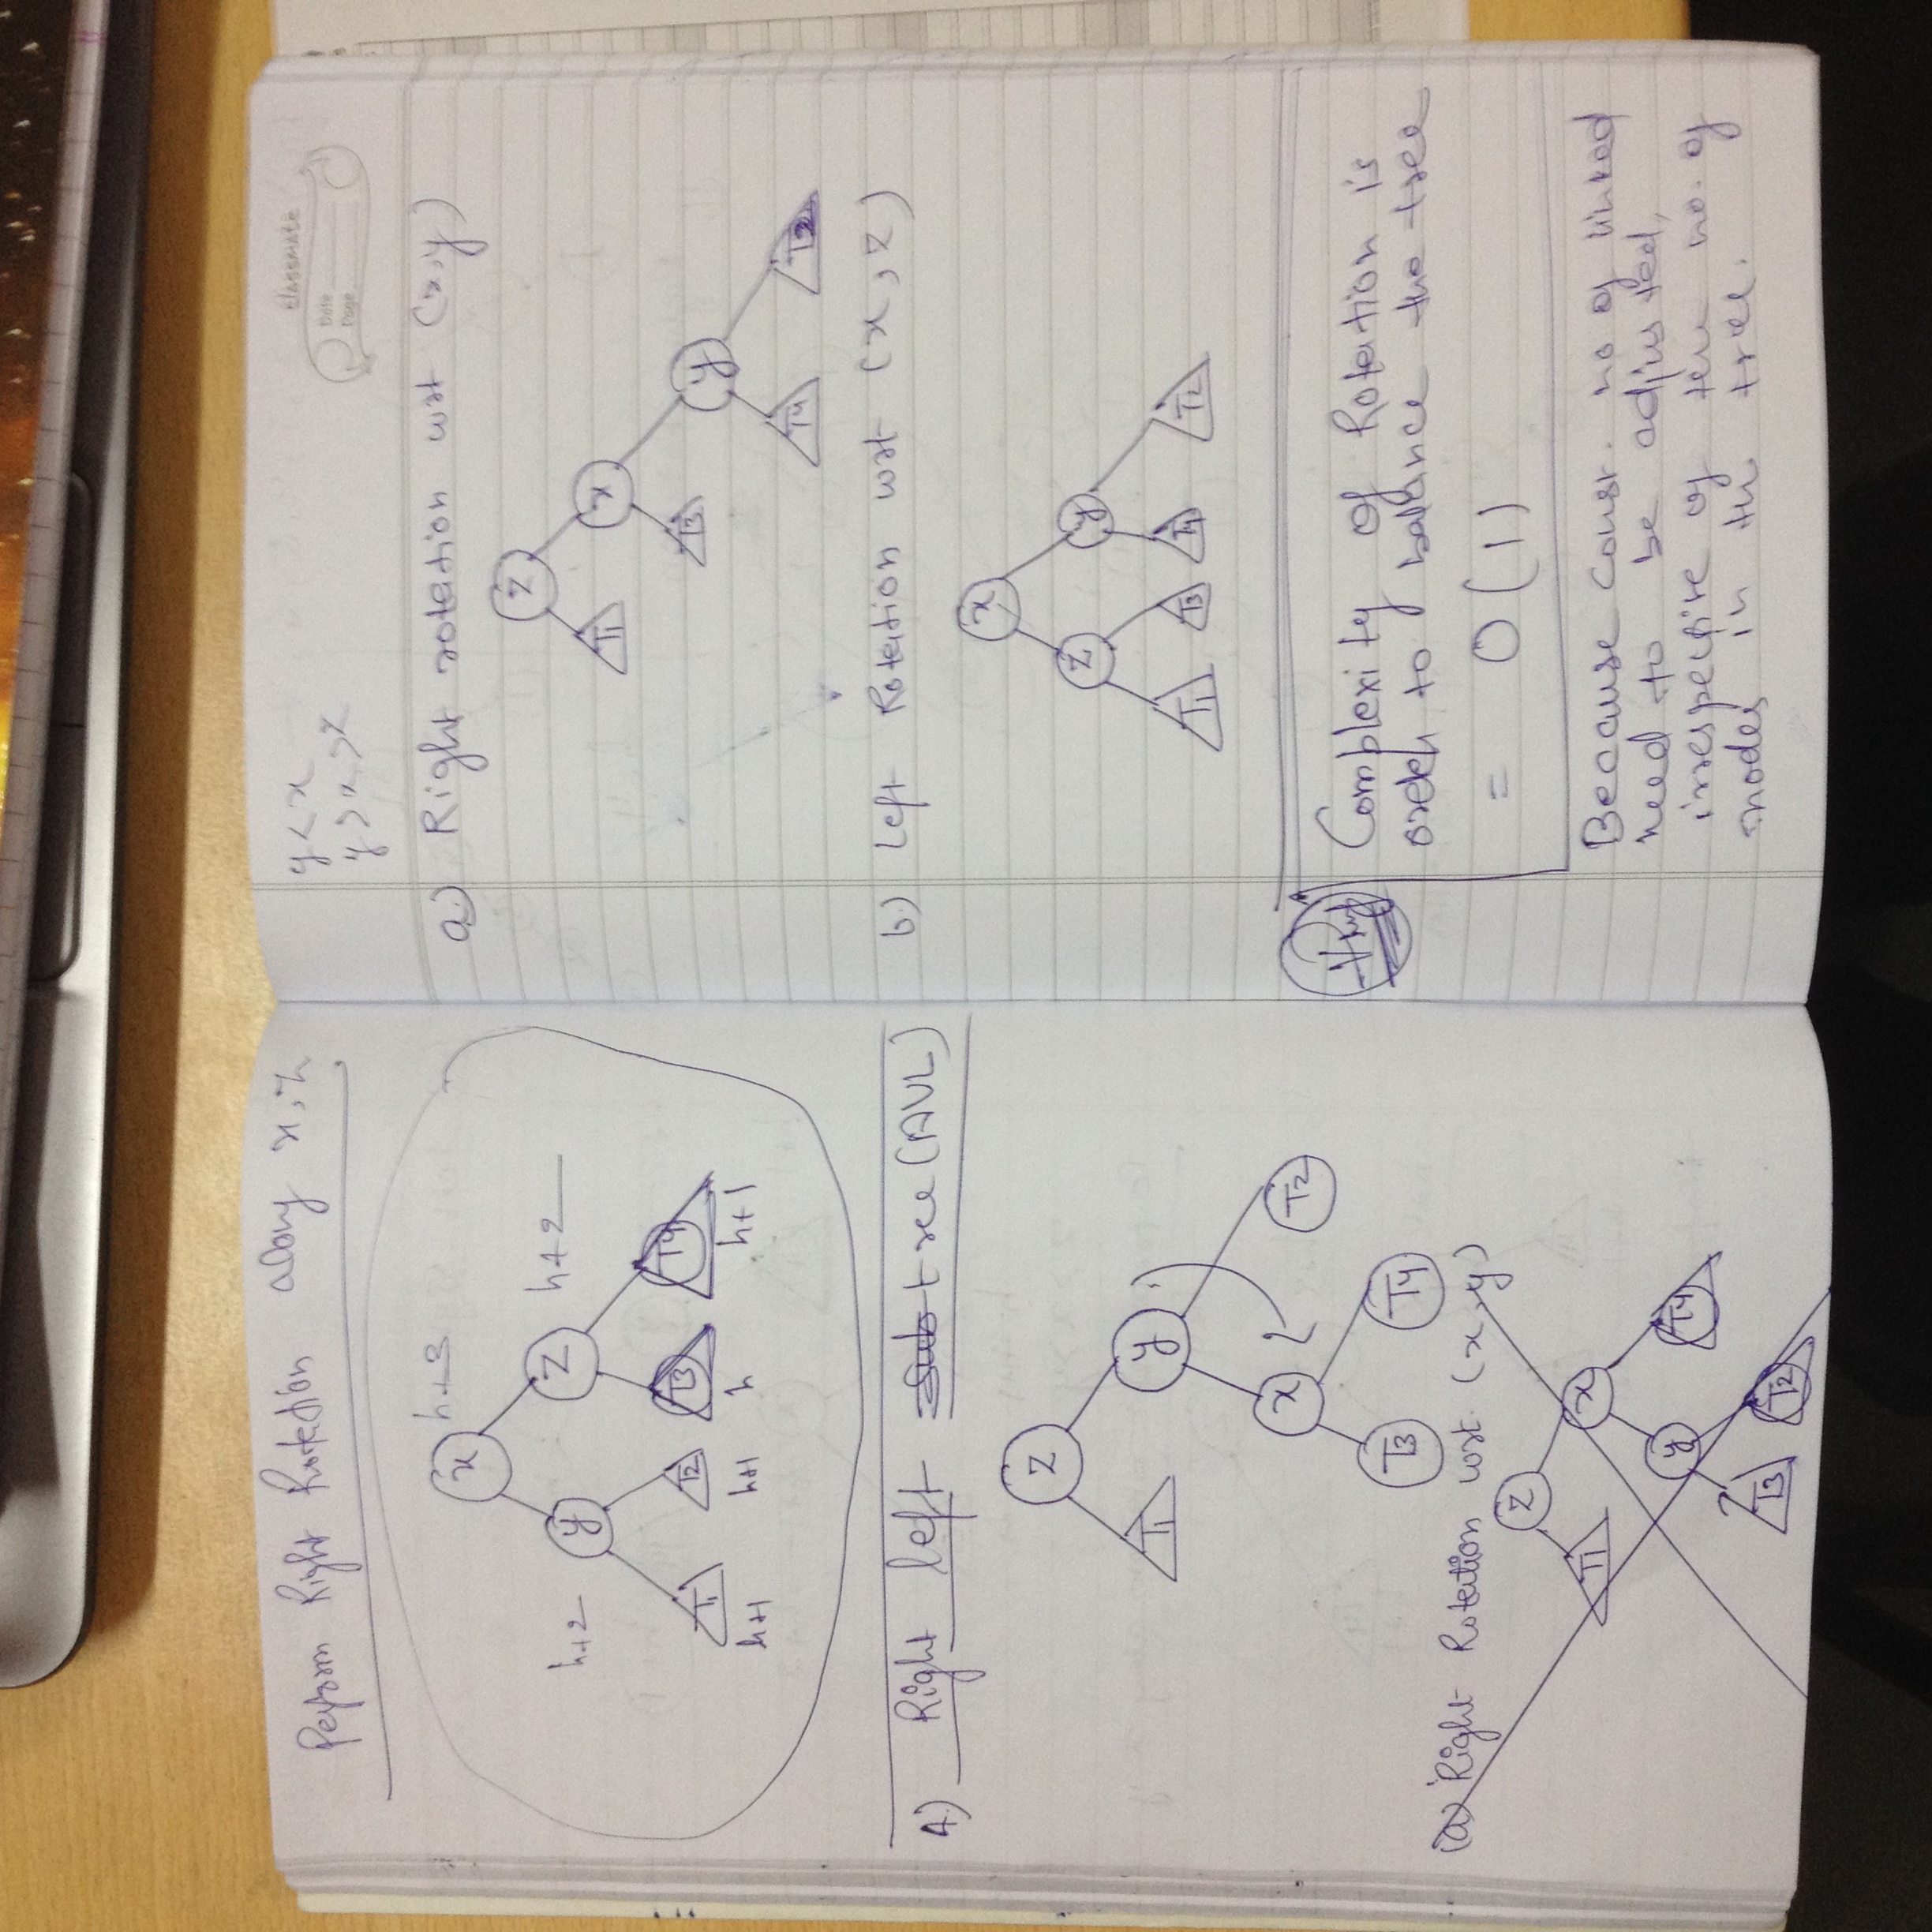 Perform Right Rotation along x,z
x h+3
h+2 y z h+2
T1 T2 T3 T4
h+1 h+1 h h+1
4) Right left tree (AVL)
z
T1 y
x T2
T3 T4
(a) Right Rotation wrt. (x,y)
z
T1 x
y T4
T3 T2
classmate
Date
Page
y < x
y > x > z
a) Right rotation wrt (x,y)
z
T1 x
T3 y
T4 T2
b.) Left Rotation wrt (x,z)
x
z y
T1 T3 T4 T2
Complexity of Rotation is
order to balance the tree
= O(1)
Because const. no of linked
need to be adjusted,
irrespective of the no. of
nodes in the tree.